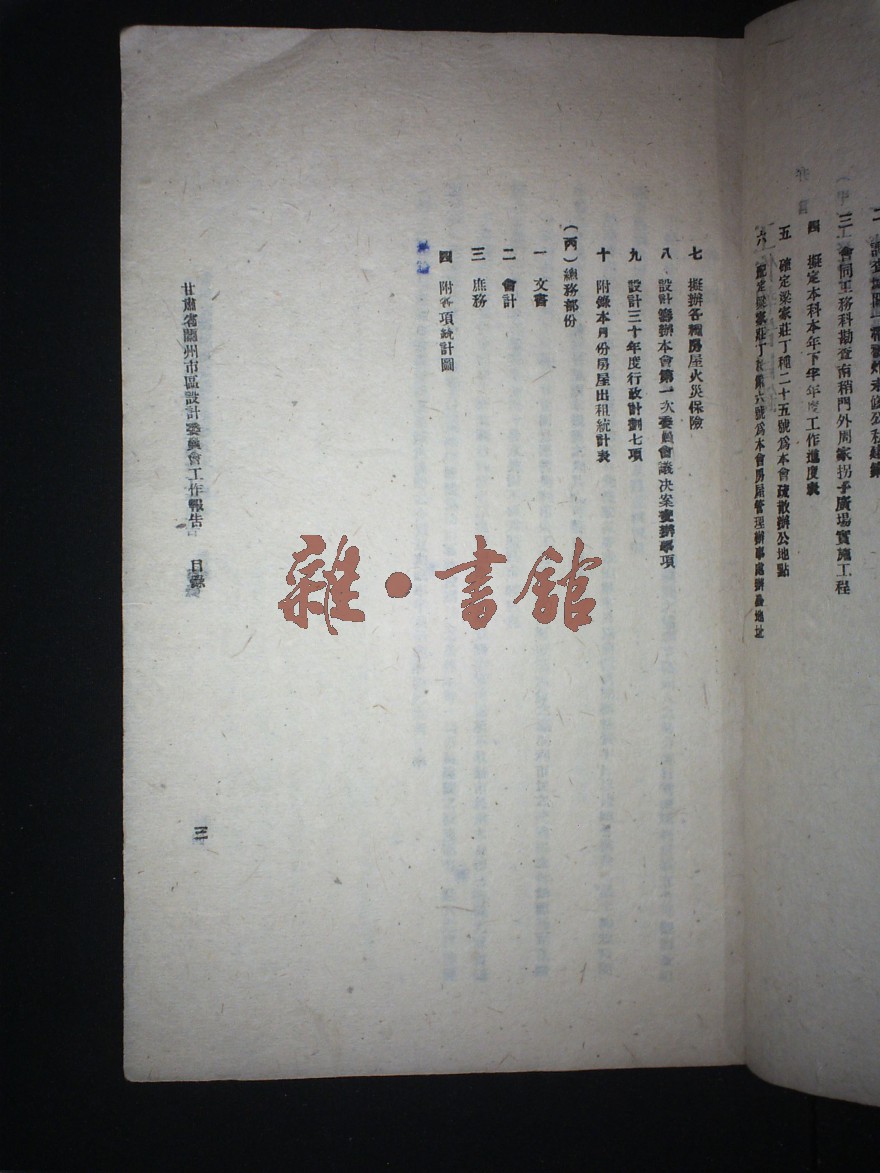 三 會同工務科勘查南稍門外周家拐子廣場實施工程
四 擬定本科本年下半年度工作進度表
五 確定梁家莊丁種二十五號爲本會疏散辦公地點
六 梁家莊丁種第六號爲本會房屋管理辦事處辦公地址
七 擬辦各種房屋火災保險
八 設計籌辦本會第一次委員會議决案查辦事項
九 設計三十年度行政計劃七項
十 附錄本月份房屋出租統計表
(丙)總務部份
一 文書
二 會計
三 庶務
四 附各項統計圖
甘肅省蘭州市區設計委員會工作報告 目錄
三
雜·書館